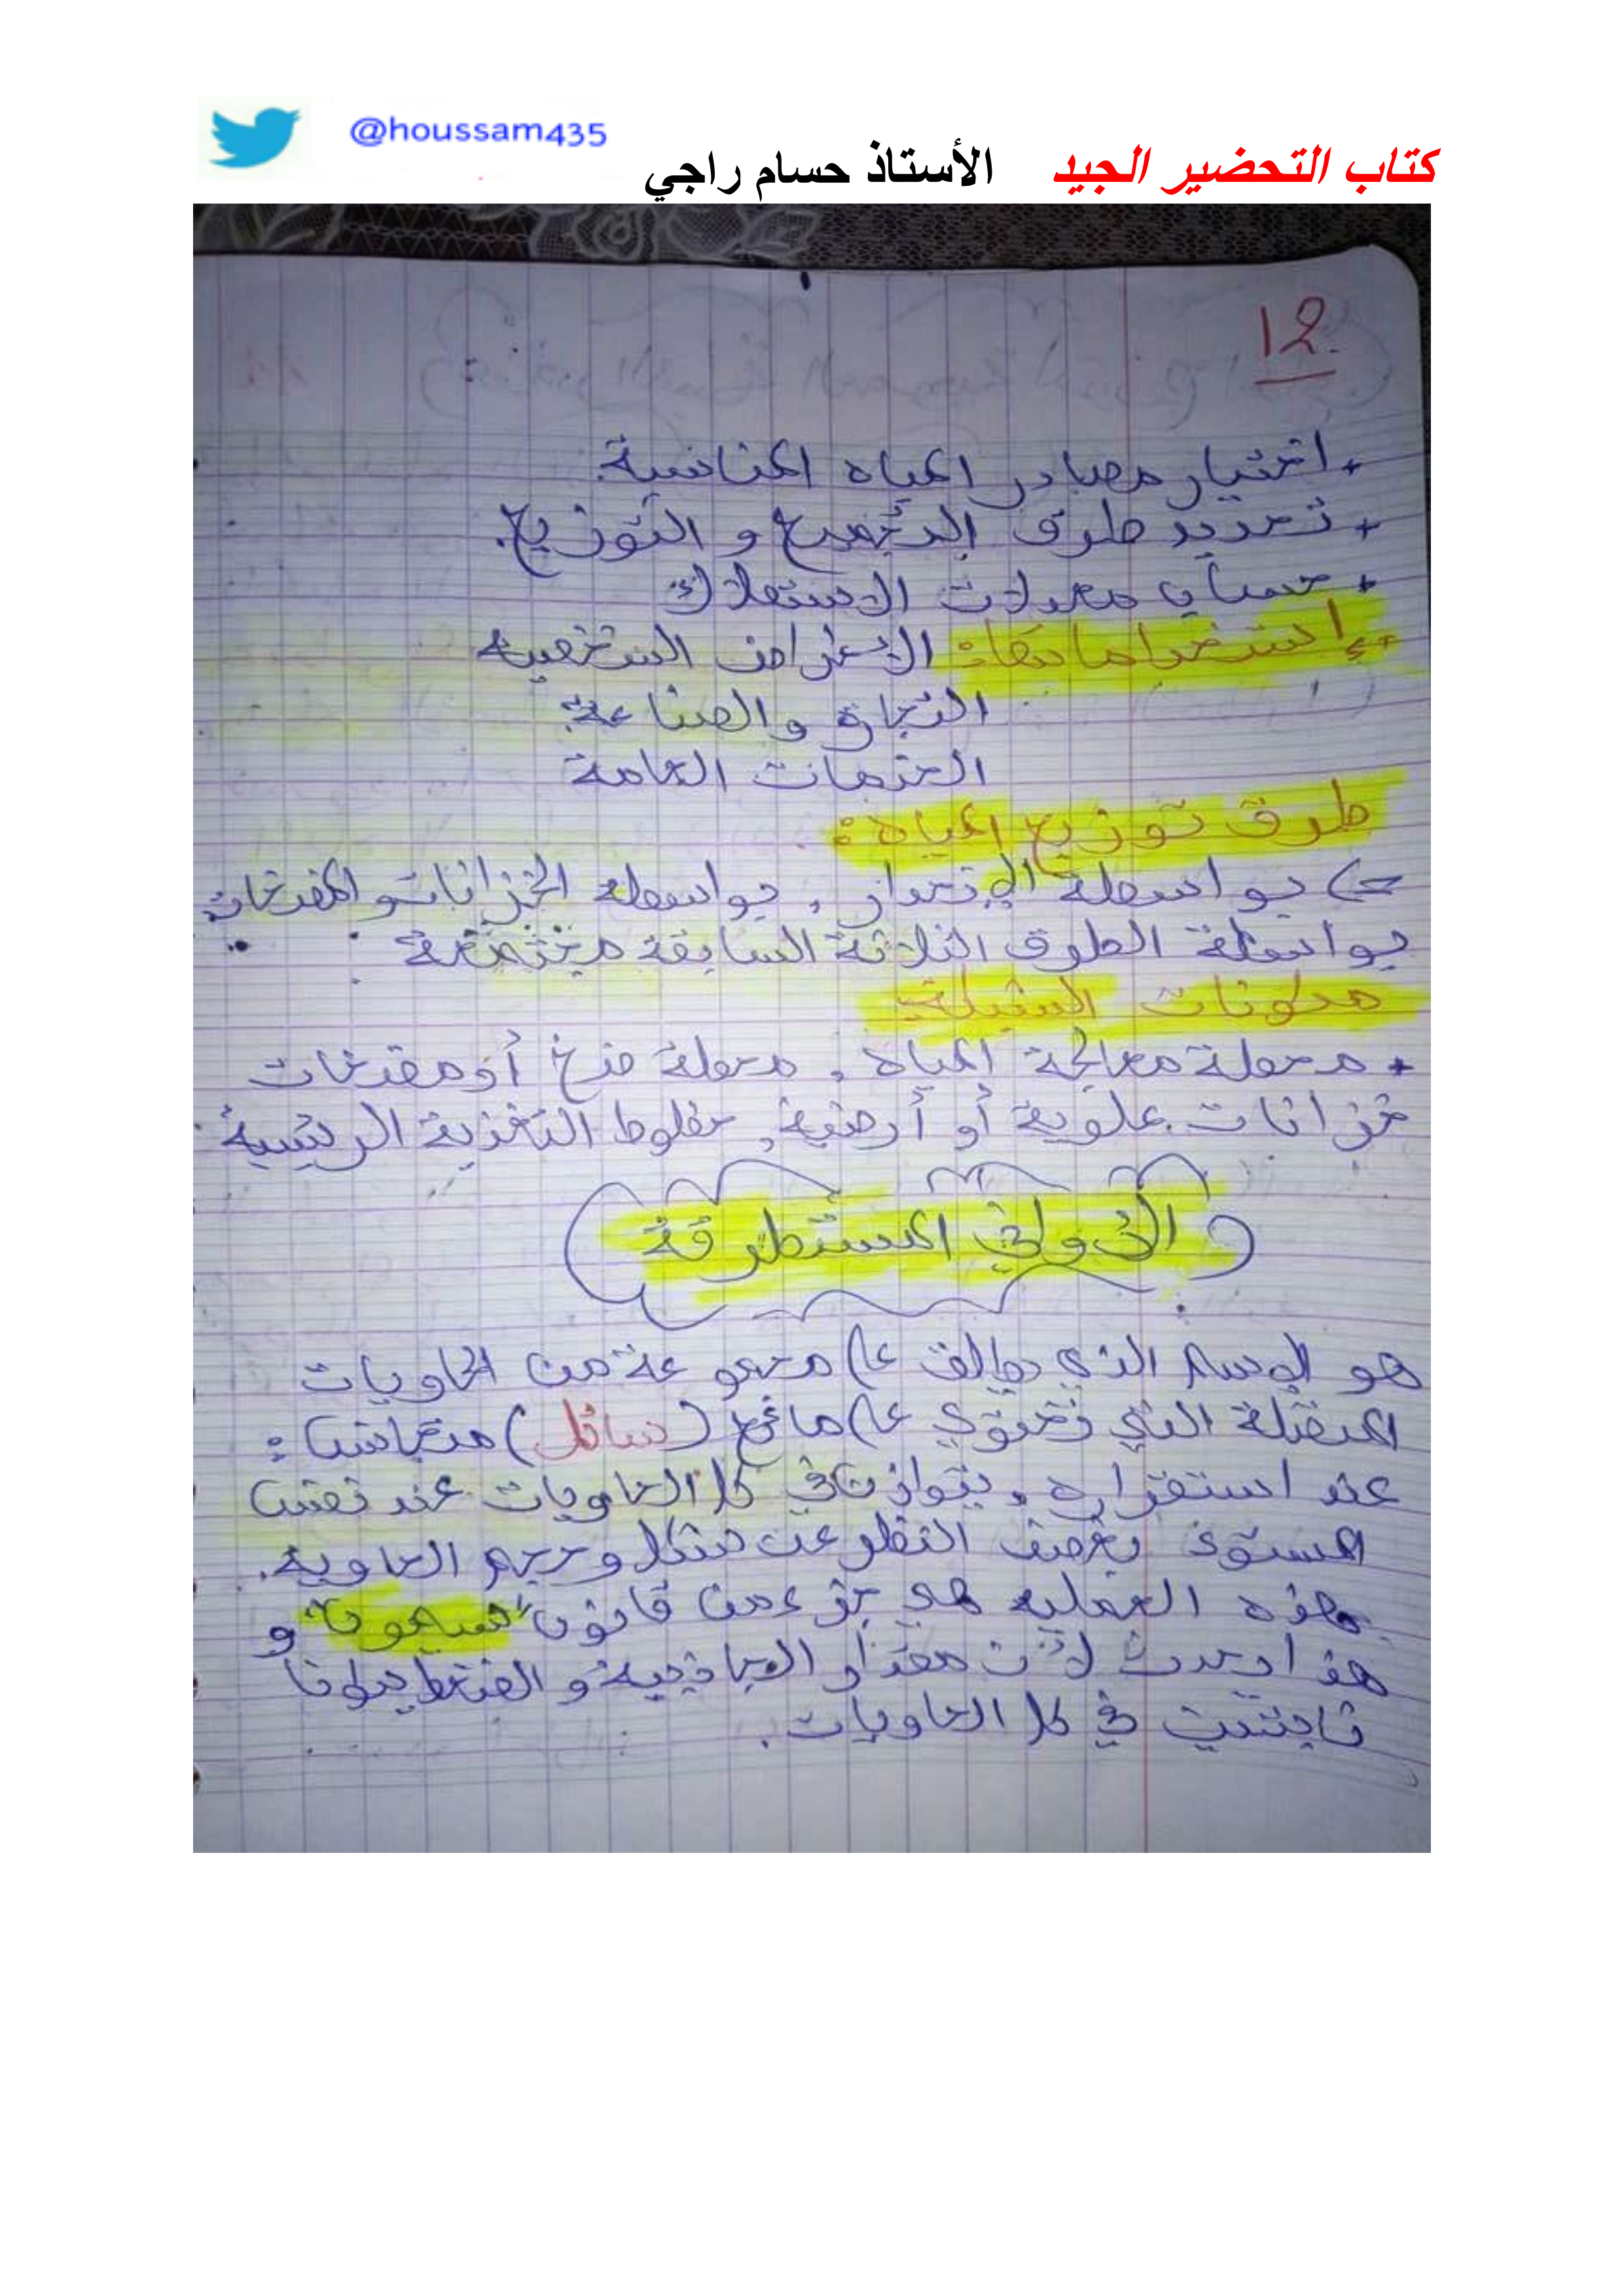 @houssam435
كتاب التحضير الجيد الأستاذ حسام راجي
12
+ اختيار مصادر المياه المناسبة.
+ تحديد طرق التجميع و التوزيع.
+ حساب معدلات الاستهلاك
الأغراض الشخصية
التجارة والصناعة
الخدمات العامة
طرق توزيع المياه:
بواسطة الإنحدار، بواسطة الخزانات و المضخات
بواسطة الطرق الثلاثة السابقة مجتمعة
مكونات الشبكة:
+ محطة معالجة المياه، محطة ضخ أو مضخات
خزانات علوية أو أرضية، خطوط التغذية الرئيسية
الأواني المستطرقة
هو الإسم الذي يطلق على مجموعة من الحاويات
المتصلة التي تحتوي على مائع (سائل) متجانس:
عند استقراره، يتوازن في كل الحاويات عند نفس
المستوى بغض النظر عن شكل وحجم الحاوية.
هذه العملية هي جزء من قانون و
هذا يحدث لأن مقدار الجاذبية و الضغط يكونا
ثابتين في كل الحاويات.